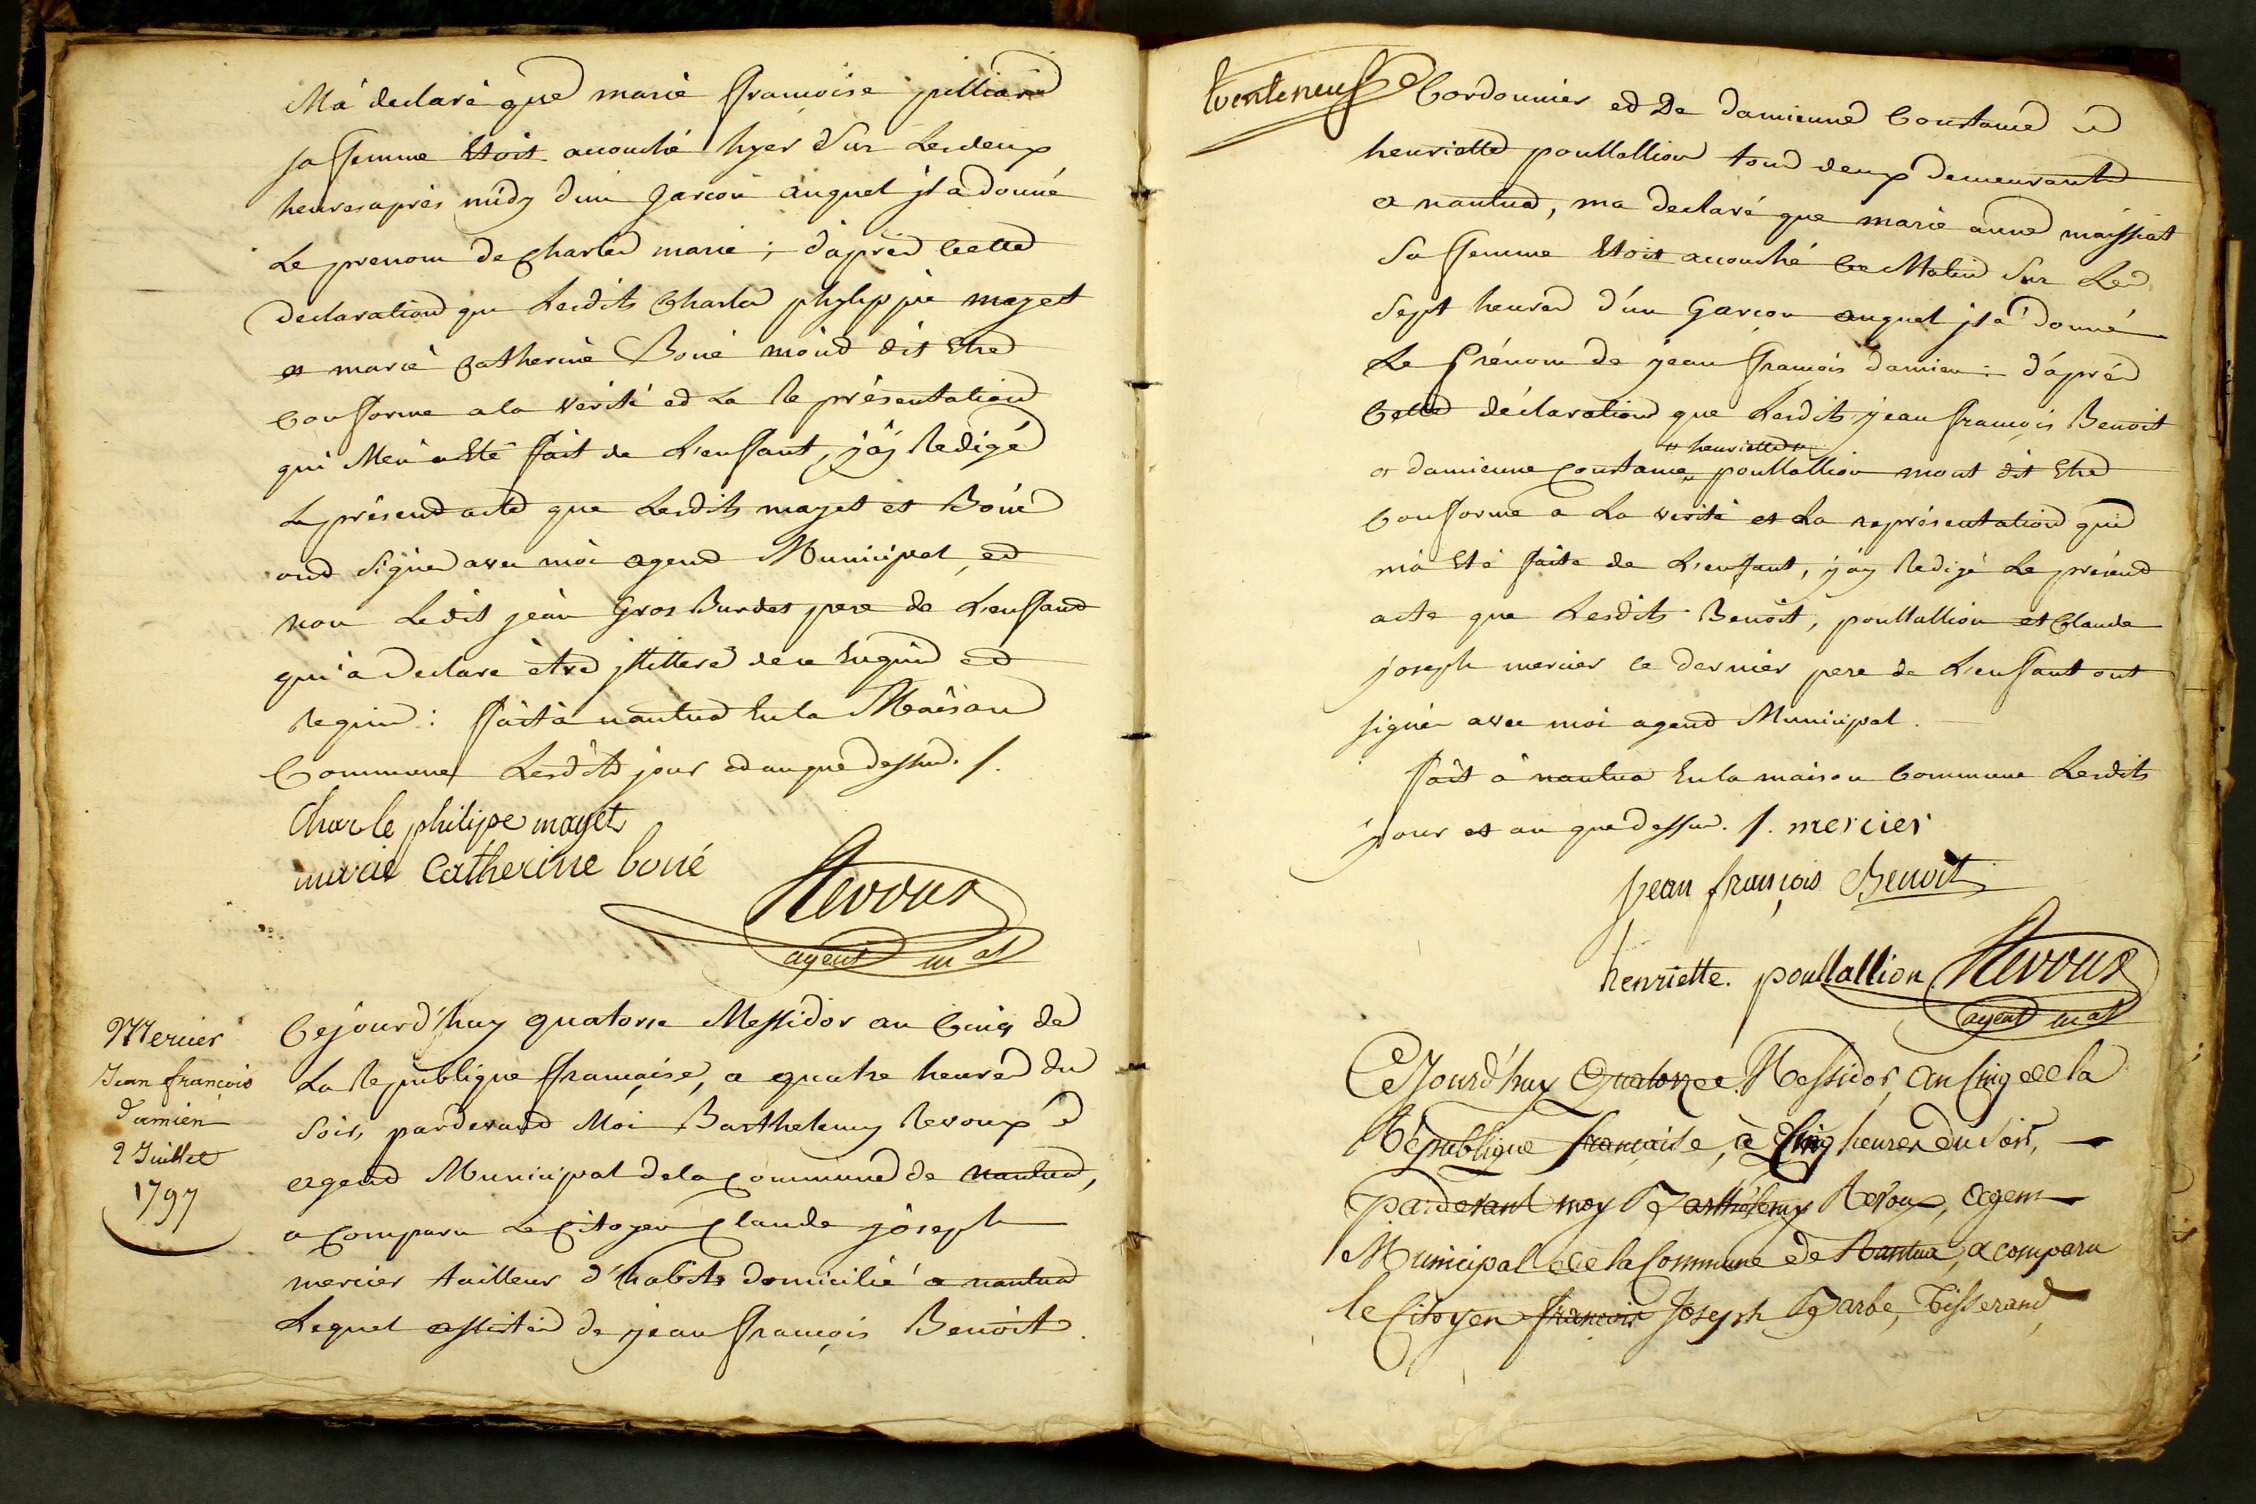 Ma declaré que marie francoise pilliard
sa femme Etoit accouché hyer Sur Les deux
heures après midy d'un garcon auquel jl a donné
Le prenom de charles marie ; d'après Cette
declaration que Lesdits Charles phylippe mayet
et marie Catherine Boué m'ond dit Etre
Conforme a la verité ed La Représentation
qui M'en a Eté fait de L'enfant, j'ay Redigé
Le présend acte que Lesdits mayet et Boué
ond Signé avec moi agend Municipal ed
non Ledit jean Gros Burdet pere de L'enfand
qui a Declaré être jllitteré de ce Enquis ed
Requis : fait à nantua En la Maison
Commune Lesdits jour ed an que dessus. /.
Charle philipe mayet
marie Catherine boué
Revoux
agent m al
Mercier
Jean françois
Damien
2 Juillet
1797
Cejourd'huy quatorse Messidor an Cinq de
La Republique française, a quatre heures du
Soir, pardevand Moi Barthelemy Revoux
agend Municipal de la Commune de nantua,
a Comparu Le Citoyen Claude joseph
mercier tailleur d'habits domicilié a nantua
Lequel assisté de jean françois Benoit
trente neuf
Cordonnier ed De damienne Constance
henriette poullallion tous deux demeurants
a nantua, ma declaré que marie anne maissiat
Sa femme Etoit accouché Ce Matin Sur Les
Sept heures d'un Garçon auquel jl a donné
Le Prénom de jean francois damien : d'après
Cette déclaration que Lesdits jean françois Benoit
" henriette "
et damienne Constance poullallion mont dit Etre
Conforme a La verité et La représentation qui
m'a Eté faite de L'enfant, j'ay Redigé Le présend
acte que Lesdits Benoit, poullallion et Claude
joseph mercier ce dernier pere de L'enfant ont
signé avec moi agend Municipal.
fait à nantua En la maison Commune Lesdits
jour et an que dessus. /. mercier
jean françois Benoit
henriette. poullallion Revoux
agent m al
Cejourd'huy Quatorze Messidor, an Cinq de la
République française, à Cinq heures du Soir,
Pardevant moy Barthélemy Revoux, agent
Municipal de la Commune de Nantua, a comparu
le Citoyen françois Joseph Barbe, Tisserand,